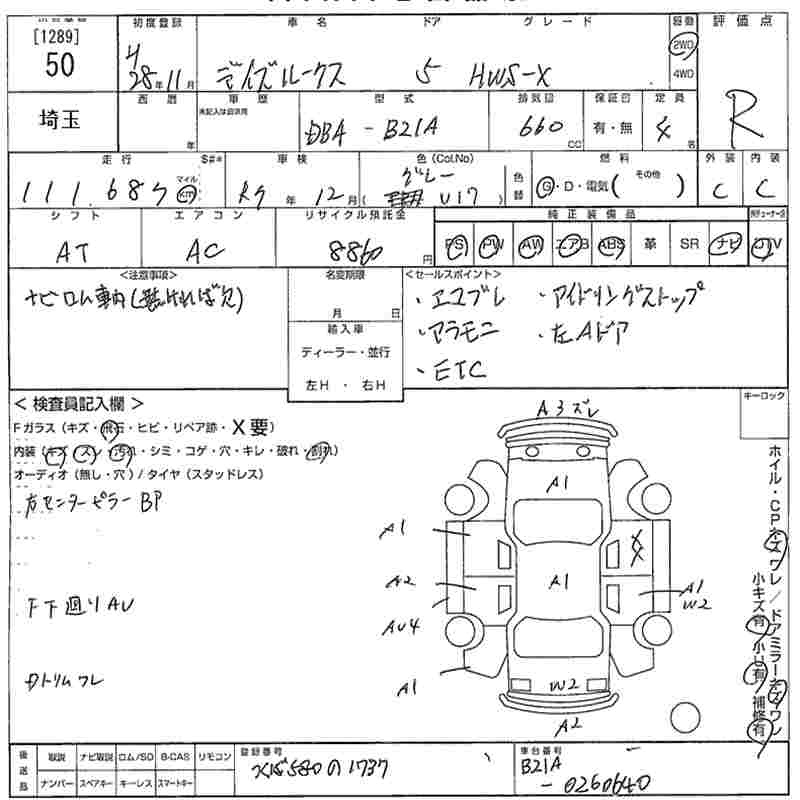 [1289]
50
埼玉
初度登録
28年11月
車名
デイズルークス
ドア
5
グレード
HWS-X
駆動
2WD
4WD
評価点
R
西暦
年
車歴
未記入は自家用
型式
DBA - B21A
排気量
660
CC
保証書
有・無
定員
4
名
走行
111,687
マイル
km
S#*
車検
R9年12月
色(Col.No)
グレー
( U17 )
色替
燃料
G・D・電気( その他 )
外装
C
内装
C
シフト
AT
エアコン
AC
リサイクル預託金
8860円
純正装備品
PS
PW
AW
エアB
ABS
革
SR
ナビ
TV
<注意事項>
ナビロム車内(無ければ欠)
名変期限
月 日
輸入車
ディーラー・並行
左H ・ 右H
<セールスポイント>
・エコプレ ・アイドリングストップ
・アラモニ ・左Aドア
・ETC
キーロック
<検査員記入欄>
Fガラス(キズ・飛石・ヒビ・リペア跡・X要)
内装(キズ・スレ・汚れ・シミ・コゲ・穴・キレ・破れ・割れ)
オーディオ(無し・穴)/タイヤ(スタッドレス)
右センターピラーBP
F下廻りAU
内トリムワレ
A3ズレ
A1
A1
A1
A2
AU4
A1
XX
A1
W2
W2
A2
ホイル・CPキズワレ/ドアミラーキズワレ
小キズ有 小U有 補修有
後送品
取説
ナビ取説
ロム/SD
B-CAS
リモコン
ナンバー
スペアキー
キーレス
スマートキー
登録番号
580の1737
車台番号
B21A
- 0260640